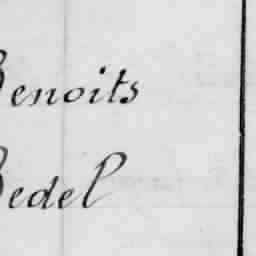 Benoits
Bedel